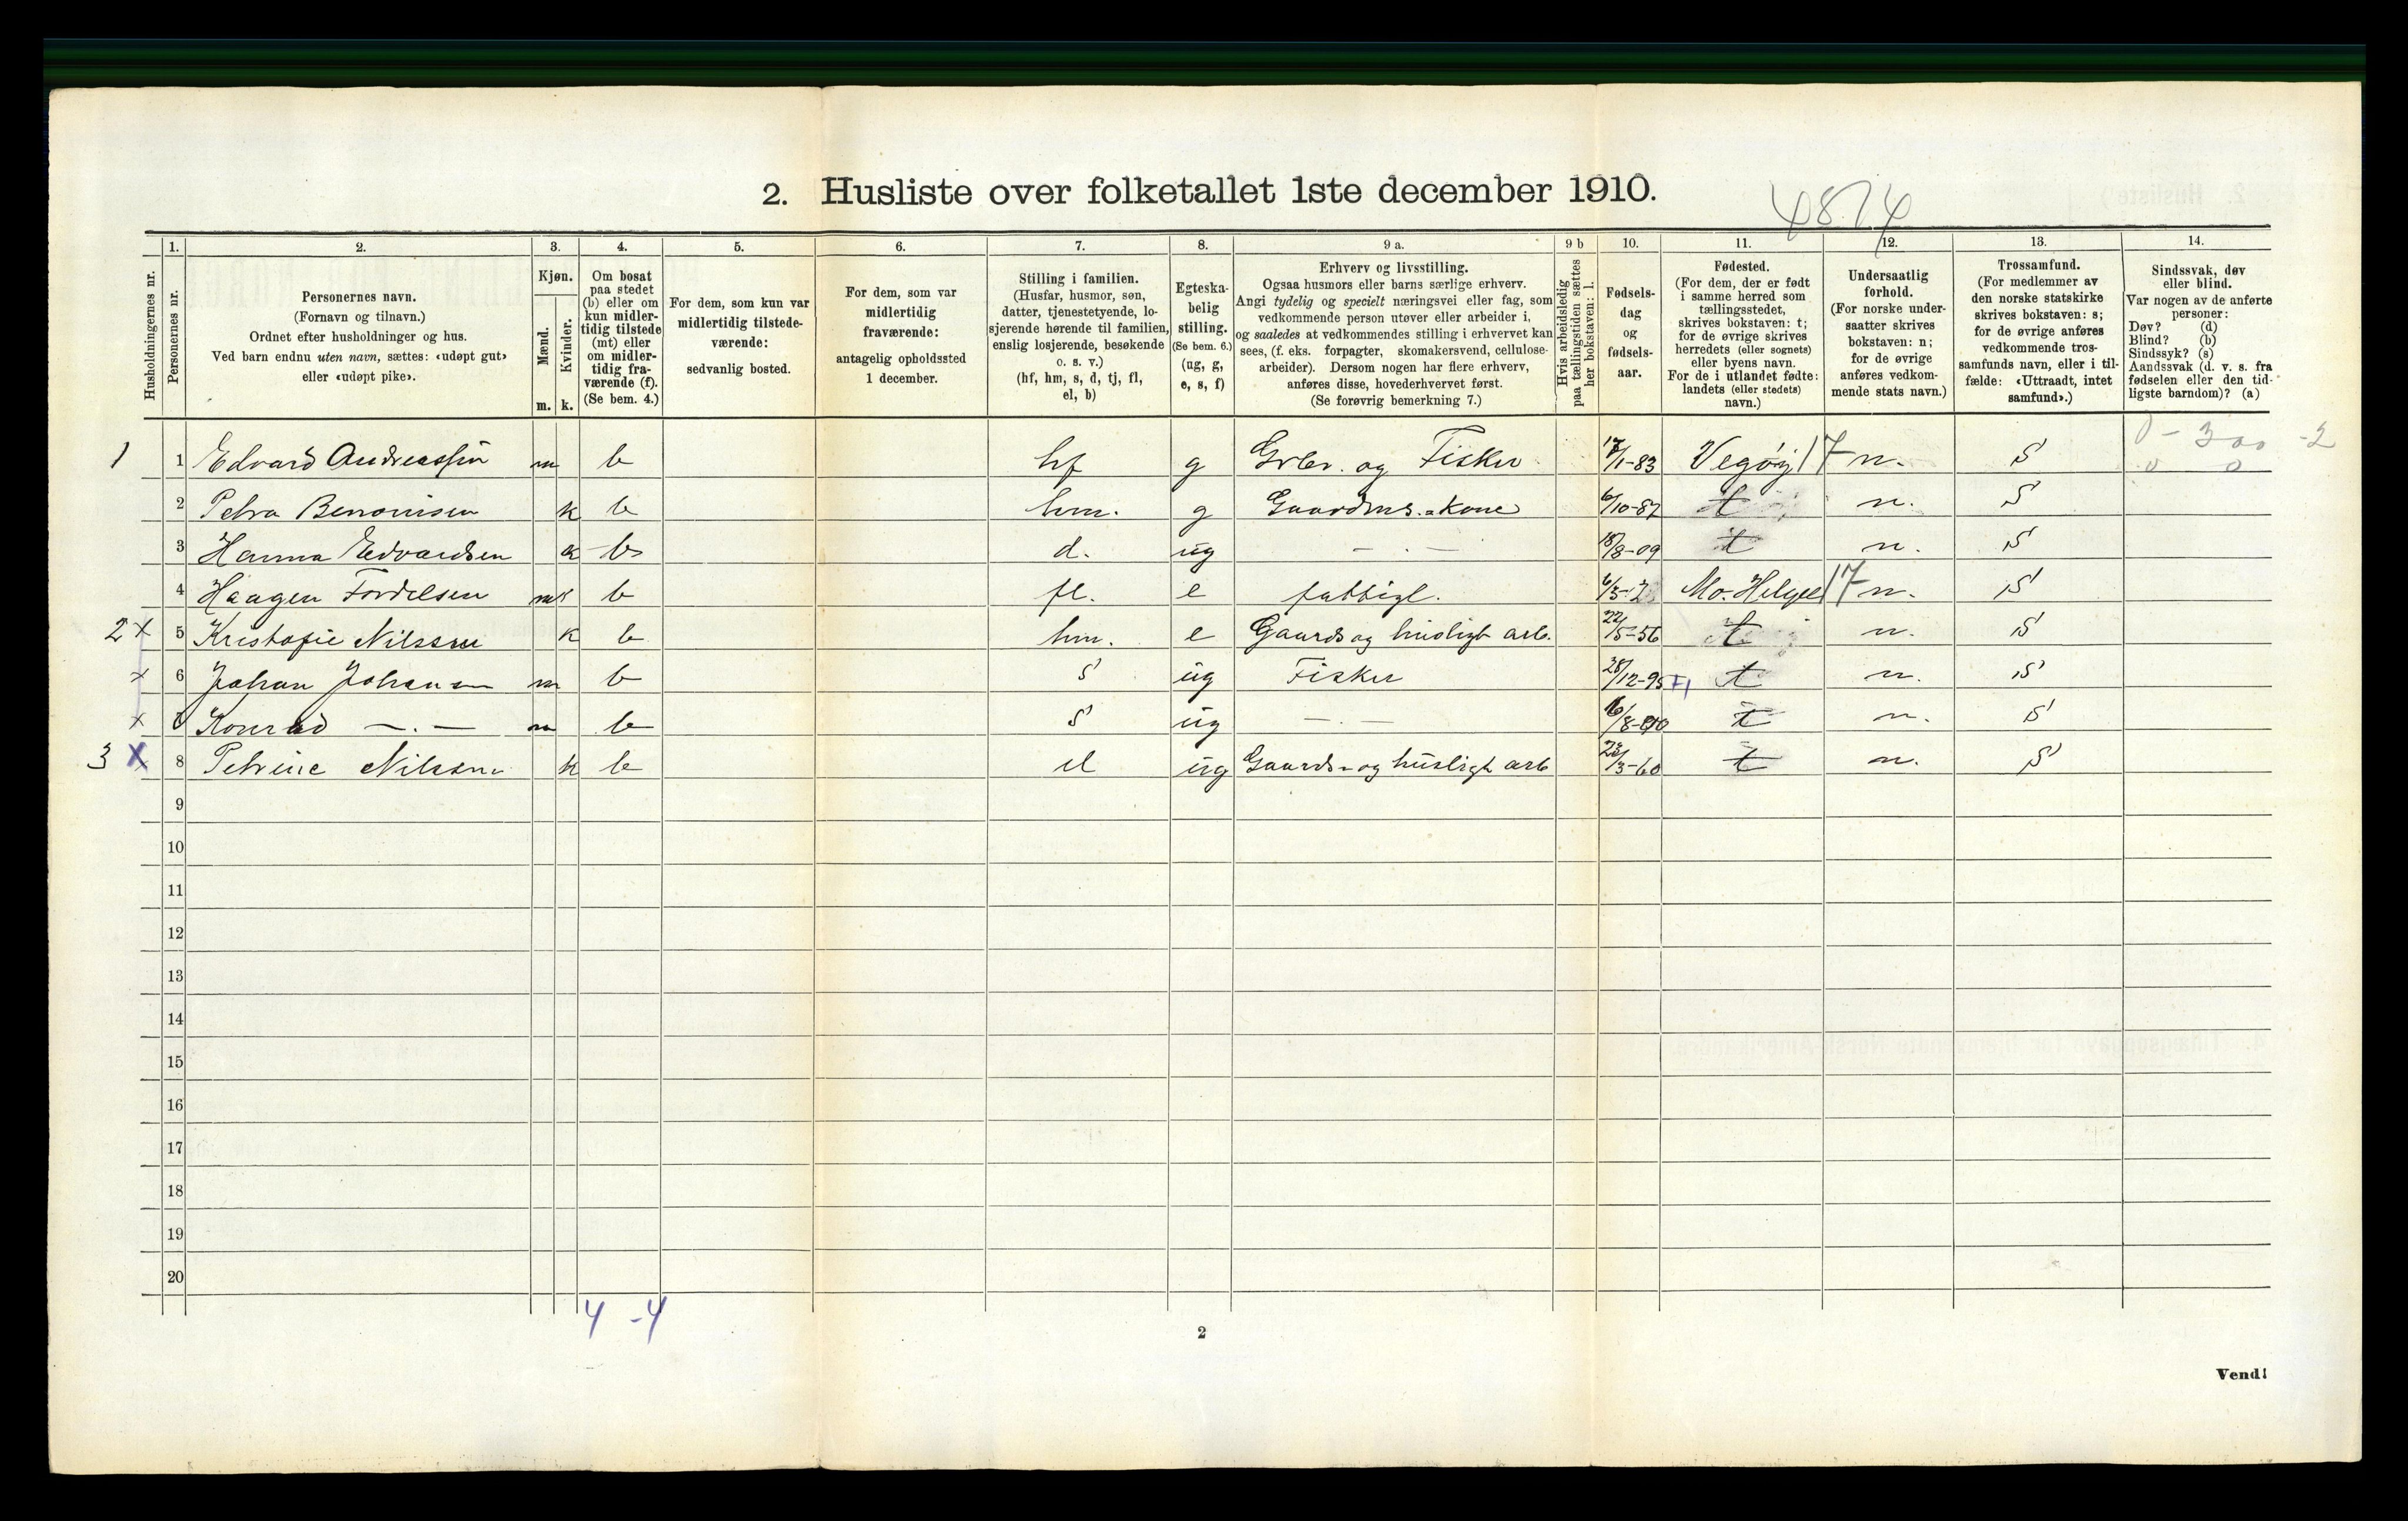 2. Husliste over folketallet 1ste december 1910.
4874
1. 2. 3. 4. 5. 6. 7. 8. 9 a. 9 b 10. 11. 12. 13. 14.
Husholdningernes nr.
Personernes nr.
Personernes navn.
(Fornavn og tilnavn.)
Ordnet efter husholdninger og hus.
Ved barn endnu uten navn, sættes: «udøpt gut»
eller «udøpt pike».
Kjøn.
Mænd.
Kvinder.
m. k.
Om bosat
paa stedet
(b) eller om
kun midler-
tidig tilstede
(mt) eller
om midler-
tidig fra-
værende (f).
(Se bem. 4.)
For dem, som kun var
midlertidig tilstede-
værende:
sedvanlig bosted.
For dem, som var
midlertidig
fraværende:
antagelig opholdssted
1 december.
Stilling i familien.
(Husfar, husmor, søn,
datter, tjenestetyende, lo-
sjerende hørende til familien,
enslig losjerende, besøkende
o. s. v.)
(hf, hm, s, d, tj, fl,
el, b)
Egteska-
belig
stilling.
(Se bem. 6.)
(ug, g,
e, s, f)
Erhverv og livsstilling.
Ogsaa husmors eller barns særlige erhverv.
Angi tydelig og specielt næringsvei eller fag, som
vedkommende person utøver eller arbeider i,
og saaledes at vedkommendes stilling i erhvervet kan
sees, (f. eks. forpagter, skomakersvend, cellulose-
arbeider). Dersom nogen har flere erhverv,
anføres disse, hovederhvervet først.
(Se forøvrig bemerkning 7.)
Hvis arbeidsledig
paa tællingstiden sættes
her bokstaven: l.
Fødsels-
dag
og
fødsels-
aar.
Fødested.
(For dem, der er født
i samme herred som
tællingsstedet,
skrives bokstaven: t;
for de øvrige skrives
herredets (eller sognets)
eller byens navn.
For de i utlandet fødte:
landets (eller stedets)
navn.)
Undersaatlig
forhold.
(For norske under-
saatter skrives
bokstaven: n;
for de øvrige
anføres vedkom-
mende stats navn.)
Trossamfund.
(For medlemmer av
den norske statskirke
skrives bokstaven: s;
for de øvrige anføres
vedkommende tros-
samfunds navn, eller i til-
fælde: «Uttraadt, intet
samfund».)
Sindssvak, døv
eller blind.
Var nogen av de anførte
personer:
Døv? (d)
Blind? (b)
Sindssyk? (s)
Aandssvak (d. v. s. fra
fødselen eller den tid-
ligste barndom)? (a)
0 - 300 - 2
0 0
1 1 Edvard Andreassen m b hf g Grbr. og Fisker 17/1-83 Vegøy 17 n. S
2 Petra Benonisen k b hm. g Gaardms.-kone 6/10-87 t n. S
3 Hanna Edvardsen k b d. ug — . — 18/8-09 t n. S
4 Haagen Tordelsen m b fl. e fattigl. 6/3-2 Mo. Helgel 17 n. S
2 x 5 Kristofie Nilssen k b hm. e Gaards og husligt arb. 22/5-56 t n. S
x 6 Johan Johansen m b S ug Fisker 28/12-95 t n. S
x Konrad — . — m b S ug — . — 16/8-00 t n. S
3 x 8 Petrine Nilssen k b el ug Gaards- og husligt arb 23/3-60 t n. S
9
10
11
12
13
14
15
16
17
18
19
20
4 - 4
2
Vend!